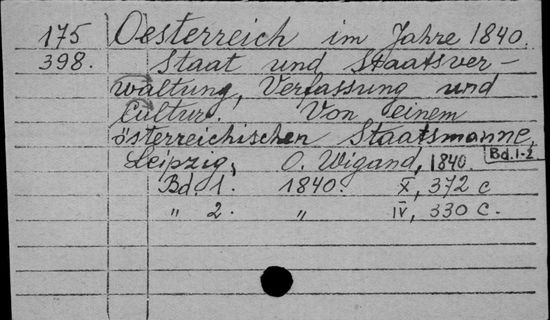 175 Oesterreich im Jahre 1840.
398. Staat und Staatsver-
waltung, Verfassung und
Cultur. Von einem
österreichischen Staatsmanne,
Leipzig, O. Wigand, 1840 Bd. 1-2
Bd. 1. 1840. X, 372 c
" 2. " IV, 330 c.